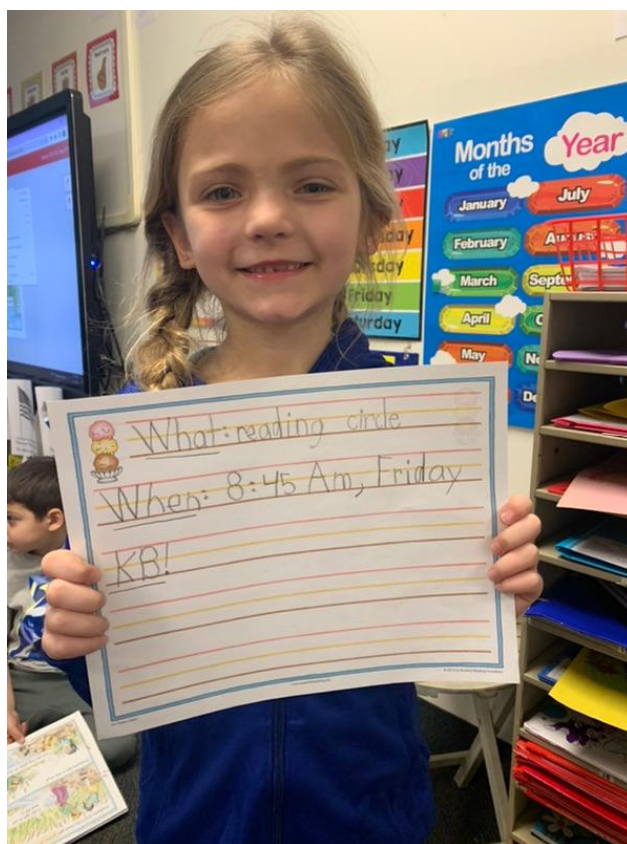 Months
of the
Year
January
July
February
March
April
May
What: reading circle
When: 8:45 Am, Friday
KB!
Friday